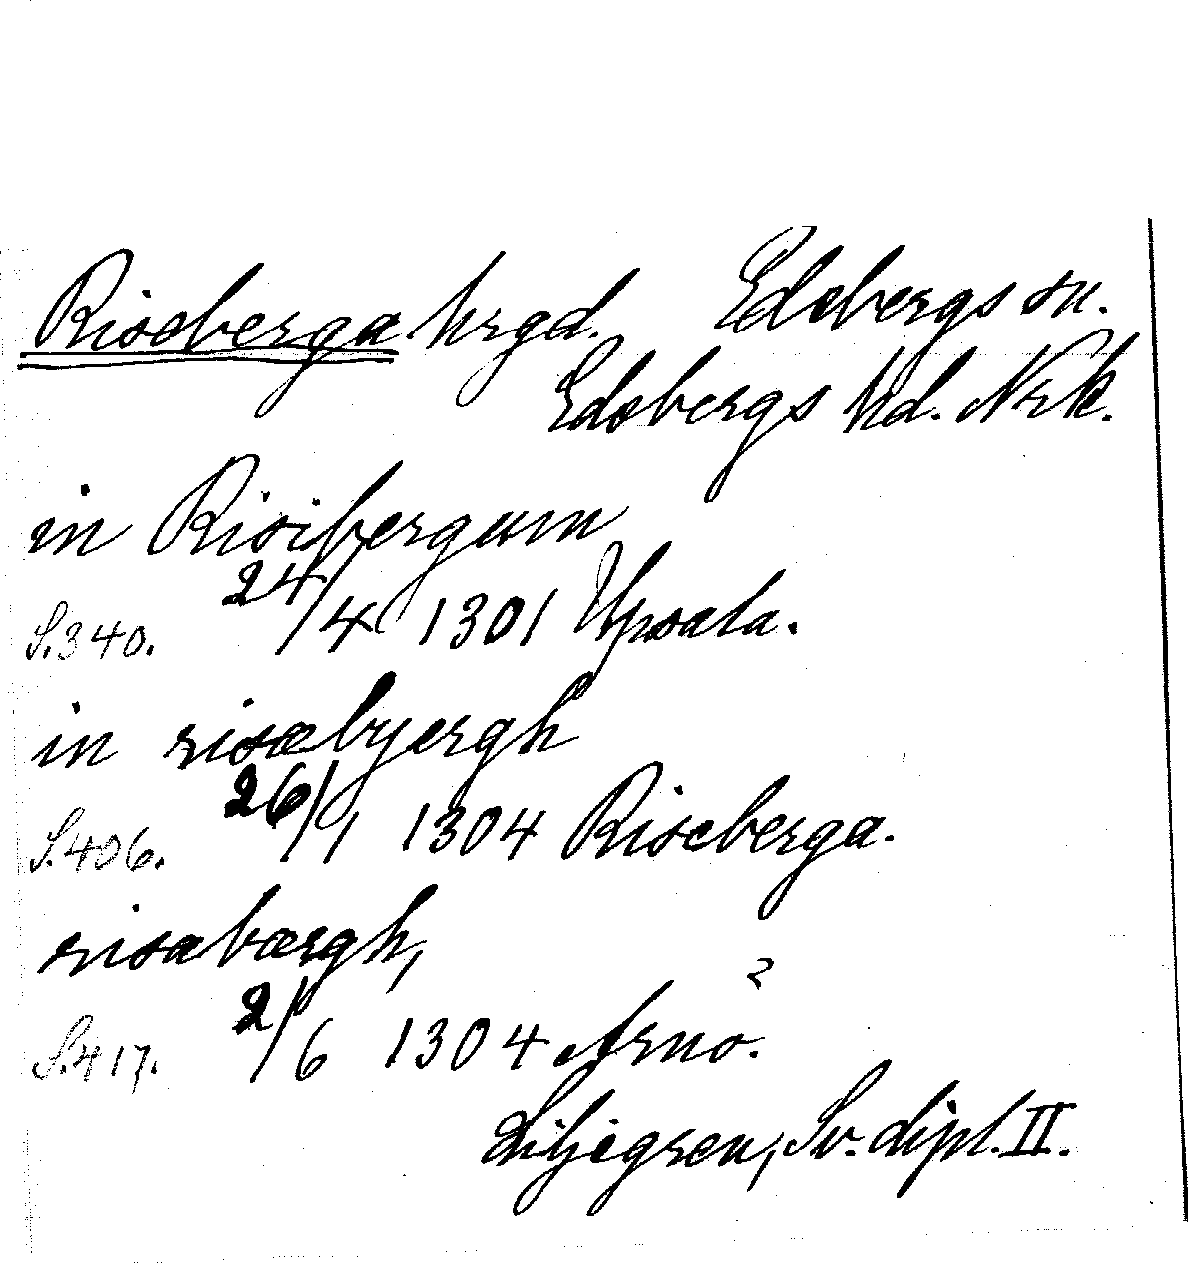 Riseberga hrgd. Edsbergs sn.
Edsbergs hd. Nrk.
in Risibergum
S. 340. 24/4 1301 Upsala.
in risæbyergh
S. 406. 26/1 1304 Riseberga.
risabærgh,
S. 417. 2/6 1304 Arnö?
Liljegren, Sv. dipl. II.